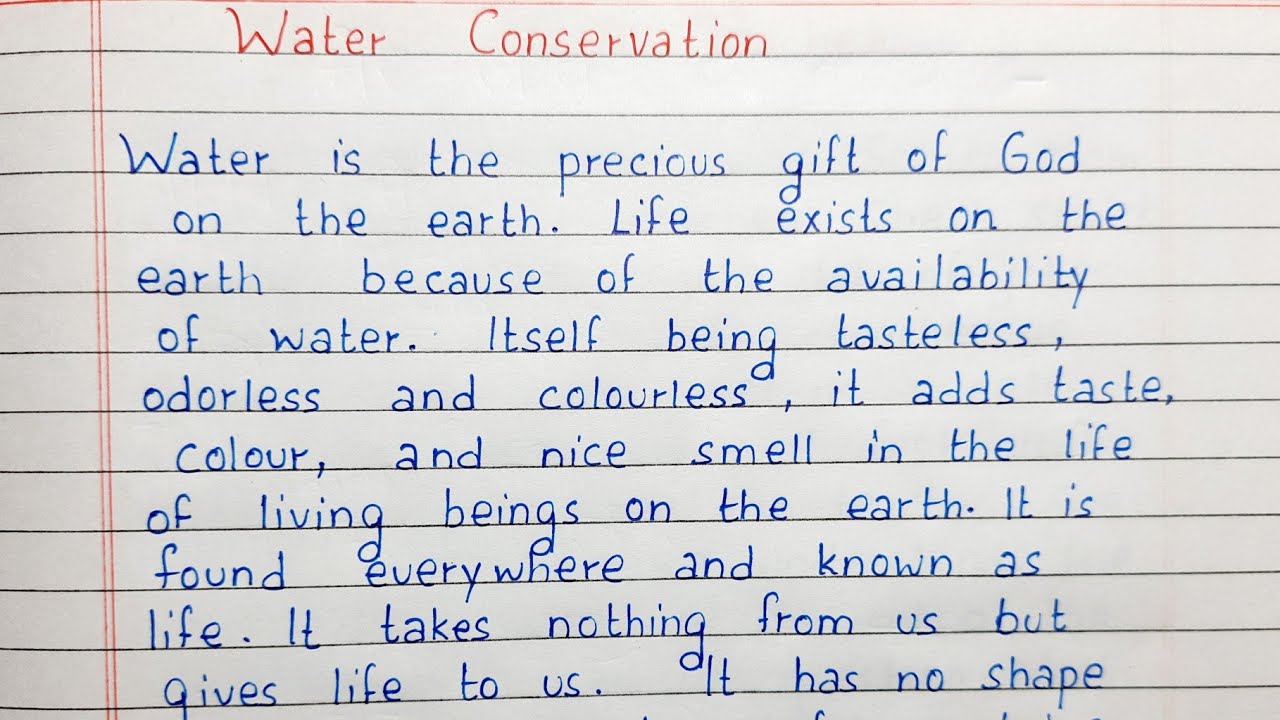 Water Conservation
Water is the precious gift of God
on the earth. Life exists on the
earth because of the availability
of water. Itself being tasteless,
odorless and colourless, it adds taste,
colour, and nice smell in the life
of living beings on the earth. It is
found everywhere and known as
life. It takes nothing from us but
gives life to us. It has no shape